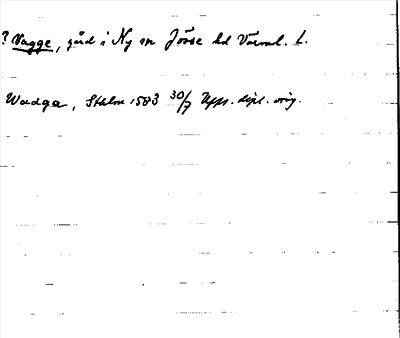 ? Vagge, gård i Ny sn Jösse hd Värml. l.
Wadga, Sthlm 1583 30/7 Upps. dipl. orig.